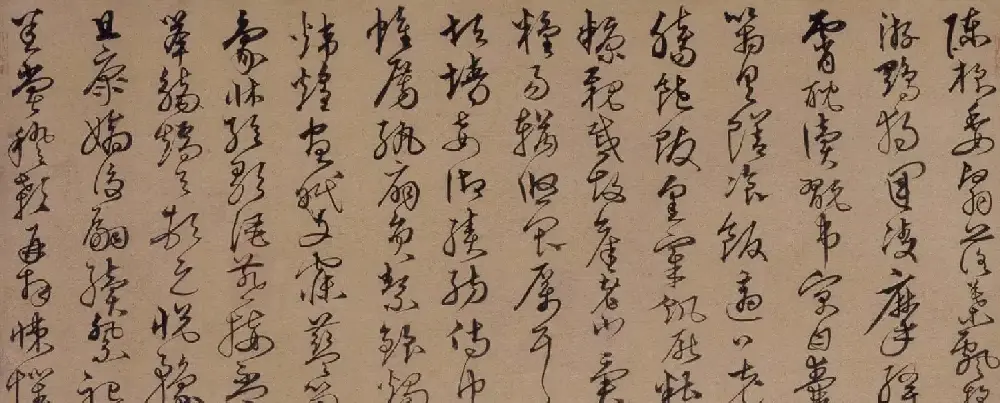 陳根委翳落葉飄颻
游鵾獨運凌摩絳
霄耽讀翫市寓目囊
箱具膳飡飯適口充
腸飽飫烹宰飢厭糟
糠親戚故舊老少異
糧易輶攸畏屬耳
垣墻妾御績紡侍巾
帷房紈扇圓潔銀燭
煒煌晝眠夕寐藍笋
象床弦歌酒宴接杯
舉觴矯手頓足悅豫
且康嫡後嗣續祭祀
蒸嘗稽顙再拜悚懼